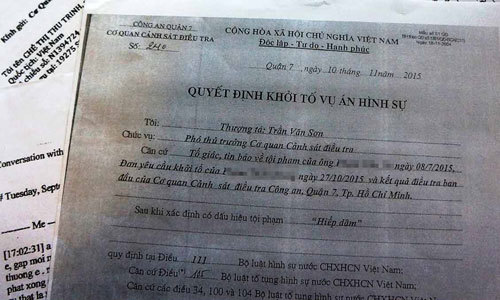 CÔNG AN QUẬN 7
CƠ QUAN CẢNH SÁT ĐIỀU TRA
Số: 240
CỘNG HÒA XÃ HỘI CHỦ NGHĨA VIỆT NAM
Độc lập - Tự do - Hạnh phúc
Quận 7, ngày 10 tháng 11 năm 2015
QUYẾT ĐỊNH KHỞI TỐ VỤ ÁN HÌNH SỰ
Tôi: Thượng tá: Trần Văn Sơn
Chức vụ: Phó thủ trưởng Cơ quan Cảnh sát điều tra
Căn cứ Tố giác, tin báo về tội phạm của ông 08/7/2015,
Đơn yêu cầu khởi tố của 27/10/2015 và kết quả điều tra ban
đầu của Cơ quan Cảnh sát điều tra Công an, Quận 7, Tp. Hồ Chí Minh.
Sau khi xác định có dấu hiệu tội phạm "Hiếp dâm"
quy định tại Điều 111 Bộ luật hình sự nước CHXHCN Việt Nam;
Căn cứ Điều Bộ luật tố tụng hình sự nước CHXHCN Việt Nam;
Căn cứ các điều 34, 100 và 104 Bộ luật tố tụng hình sự
Kính gửi: Cơ Qu
Tôi tên CHẾ THỊ THU TRINH,
Quốc tịch: Việt Nam
chiếu số N1394724
19275
Conversation with
# Tuesday, Sept
Me
[17:02:31] a
e, gap moi n
thuong e . r
phat xong
a thi